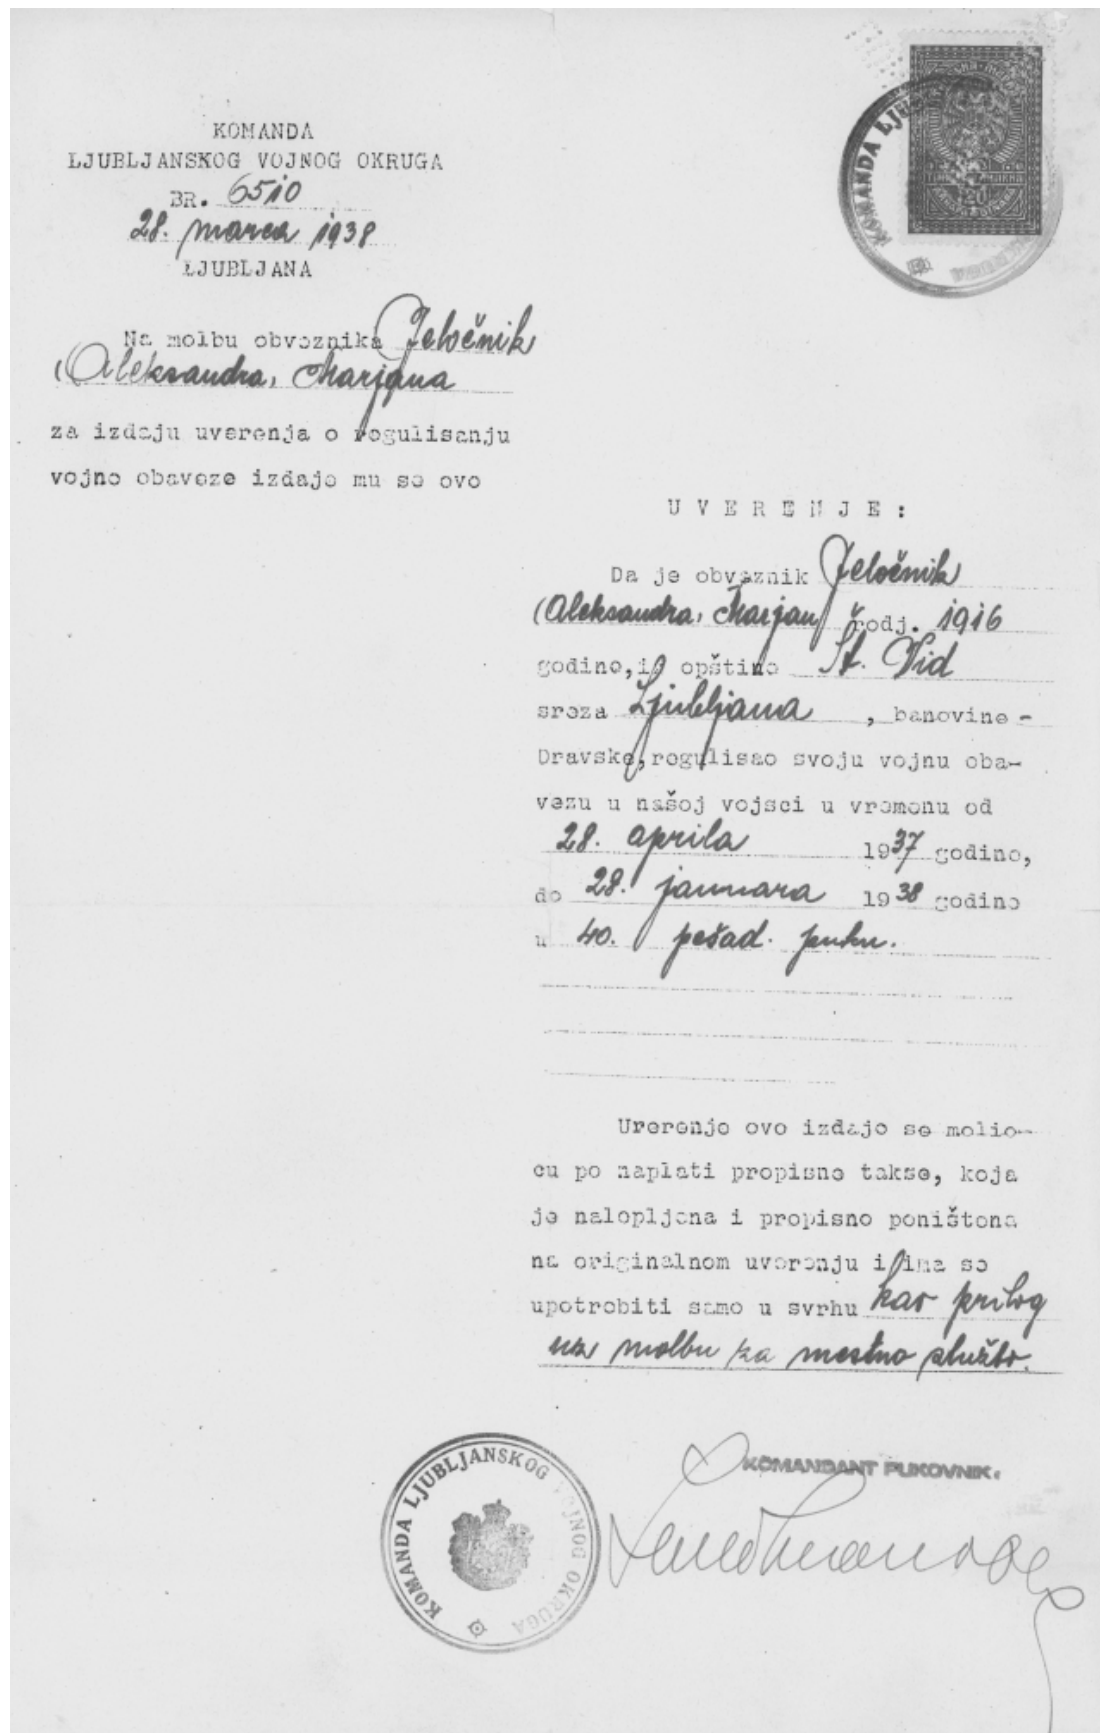 KOMANDA
LJUBLJANSKOG VOJNOG OKRUGA
BR. 6510
28. marca 1938
LJUBLJANA
KOMANDA LJU
20
Na molbu obveznika Jeločnik
(Aleksandra, Marjana
za izdaju uverenja o regulisanju
vojne obaveze izdaje mu se ovo
UVERENJE:
Da je obveznik Jeločnik
(Aleksandra, Marjan rodj. 1916
godine, iz opštine Št. Vid
sreza Ljubljana, banovine -
Dravske, regulisao svoju vojnu oba-
vezu u našoj vojsci u vremenu od
28. aprila 1937 godine,
do 28. januara 1938 godine
u 40. pešad. puku.
Urerenje ovo izdaje se molio-
cu po naplati propisne takse, koja
je nalepljena i propisno poništena
na originalnom uverenju i ima se
upotrebiti samo u svrhu kao prilog
uz molbu za mestno službo.
KOMANDANT PUKOVNIK.
KOMANDA LJUBLJANSKOG VOJNOG OKRUGA